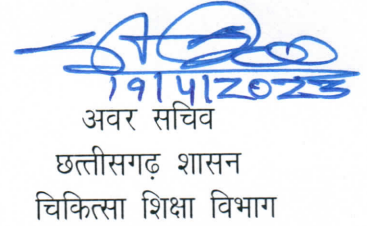 19/4/2023
अवर सचिव
छत्तीसगढ़ शासन
चिकित्सा शिक्षा विभाग